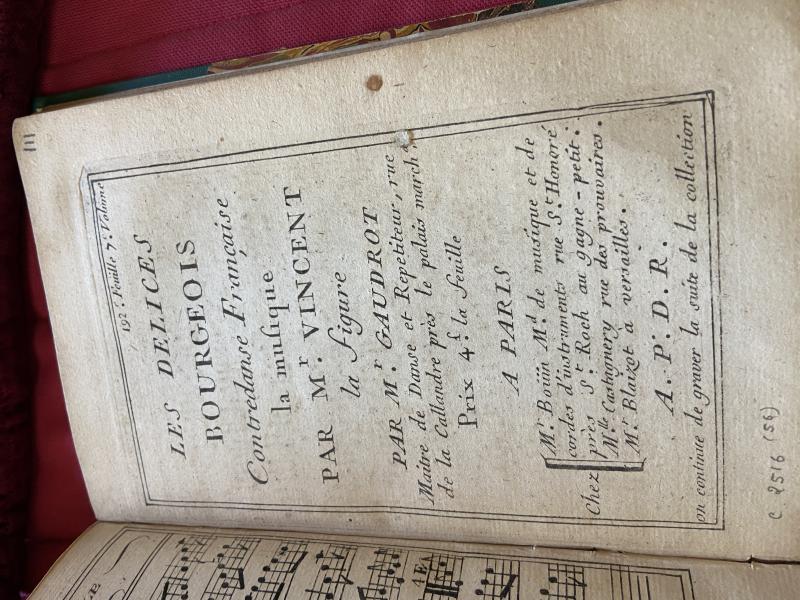 111
192ᵉ. Feuille 7ᵉ. Volume
LES DELICES
BOURGEOIS
Contredanse Française
la musique
PAR Mʳ. VINCENT
la figure
PAR Mʳ GAUDROT
Maitre de Danse et Repetiteur, rue
de la Callandre près le palais march
Prix 4ˢ. la feuille
A PARIS
Chez
Mʳ. Boüin Mᵈ. de musique et de
cordes d'instruments rue Sᵗ. Honoré
près Sᵗ. Roch au gagne-petit.
Mˡˡᵉ Castagnery rue des prouvaires.
Mʳ. Blaizot a versailles.
A. P. D. R.
on continue de graver la suite de la collection
C 2516 (56)